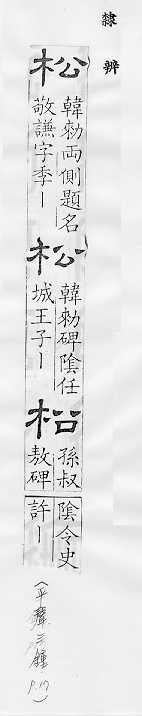 隸辨
松
韓勑両側題名
敬謙字季ー
松
韓勑碑陰任
城王子ー
柗
孫叔
敖碑
陰令史
許ー
(平聲三鍾